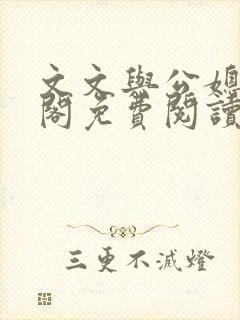 文文與公媳
閣免費閱讀
三更不滅燈